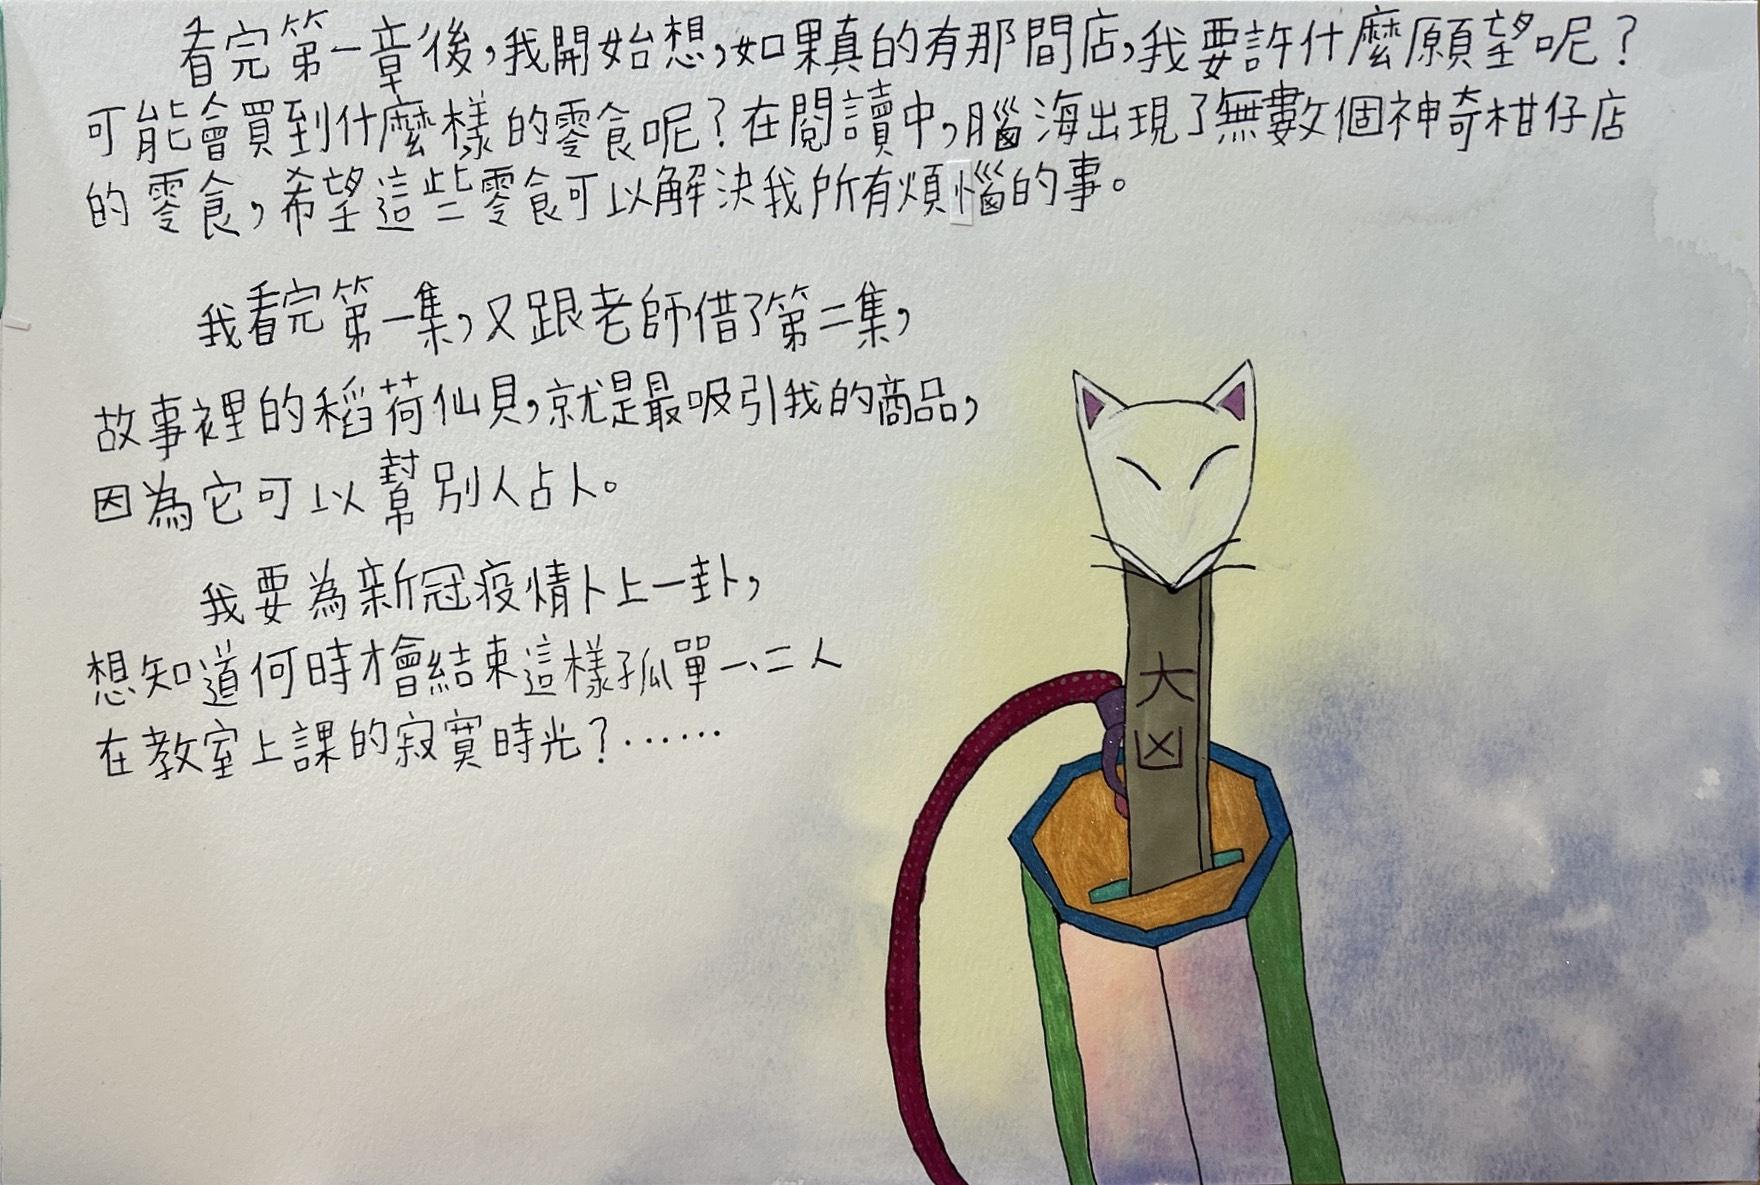 看完第一章後,我開始想,如果真的有那間店,我要許什麼願望呢?
可能會買到什麼樣的零食呢?在閱讀中,腦海出現了無數個神奇柑仔店
的零食,希望這些零食可以解決我所有煩惱的事。
我看完第一集,又跟老師借了第二集,
故事裡的稻荷仙貝,就是最吸引我的商品,
因為它可以幫別人占卜。
我要為新冠疫情卜上一卦,
想知道何時才會結束這樣孤單一、二人
在教室上課的寂寞時光?……
大
凶